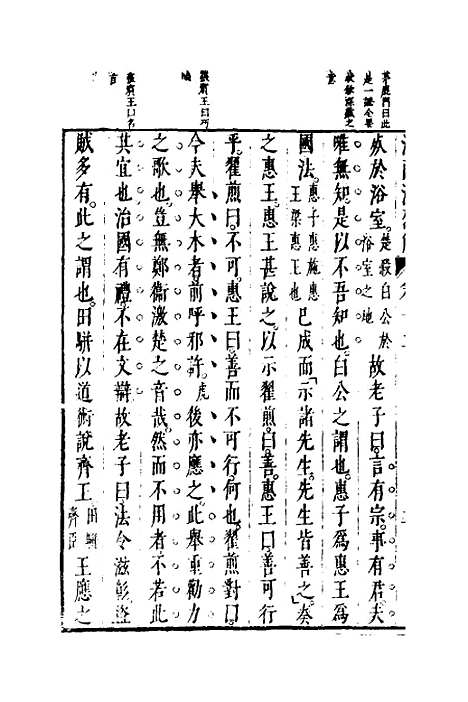 死於浴室楚殺白公於浴室之地故老子曰言有宗事有君夫
唯無知是以不吾知也白公之謂也惠子爲惠王爲
國法惠子惠施惠王梁惠王也已成而示諸先生先生皆善之奏
之惠王惠王甚說之以示翟煎曰善惠王曰善可行
乎翟煎曰不可惠王曰善而不可行何也翟煎對曰
今夫舉大木者前呼邪許虎後亦應之此舉重勸力
之歌也豈無鄭衞激楚之音哉然而不用者不若此
其宜也治國有禮不在文辯故老子曰法令滋彰盜
賊多有此之謂也田駢以道術說齊王田駢齊臣王應之
茅鹿門曰此
張賓王曰巧
張賓王曰名